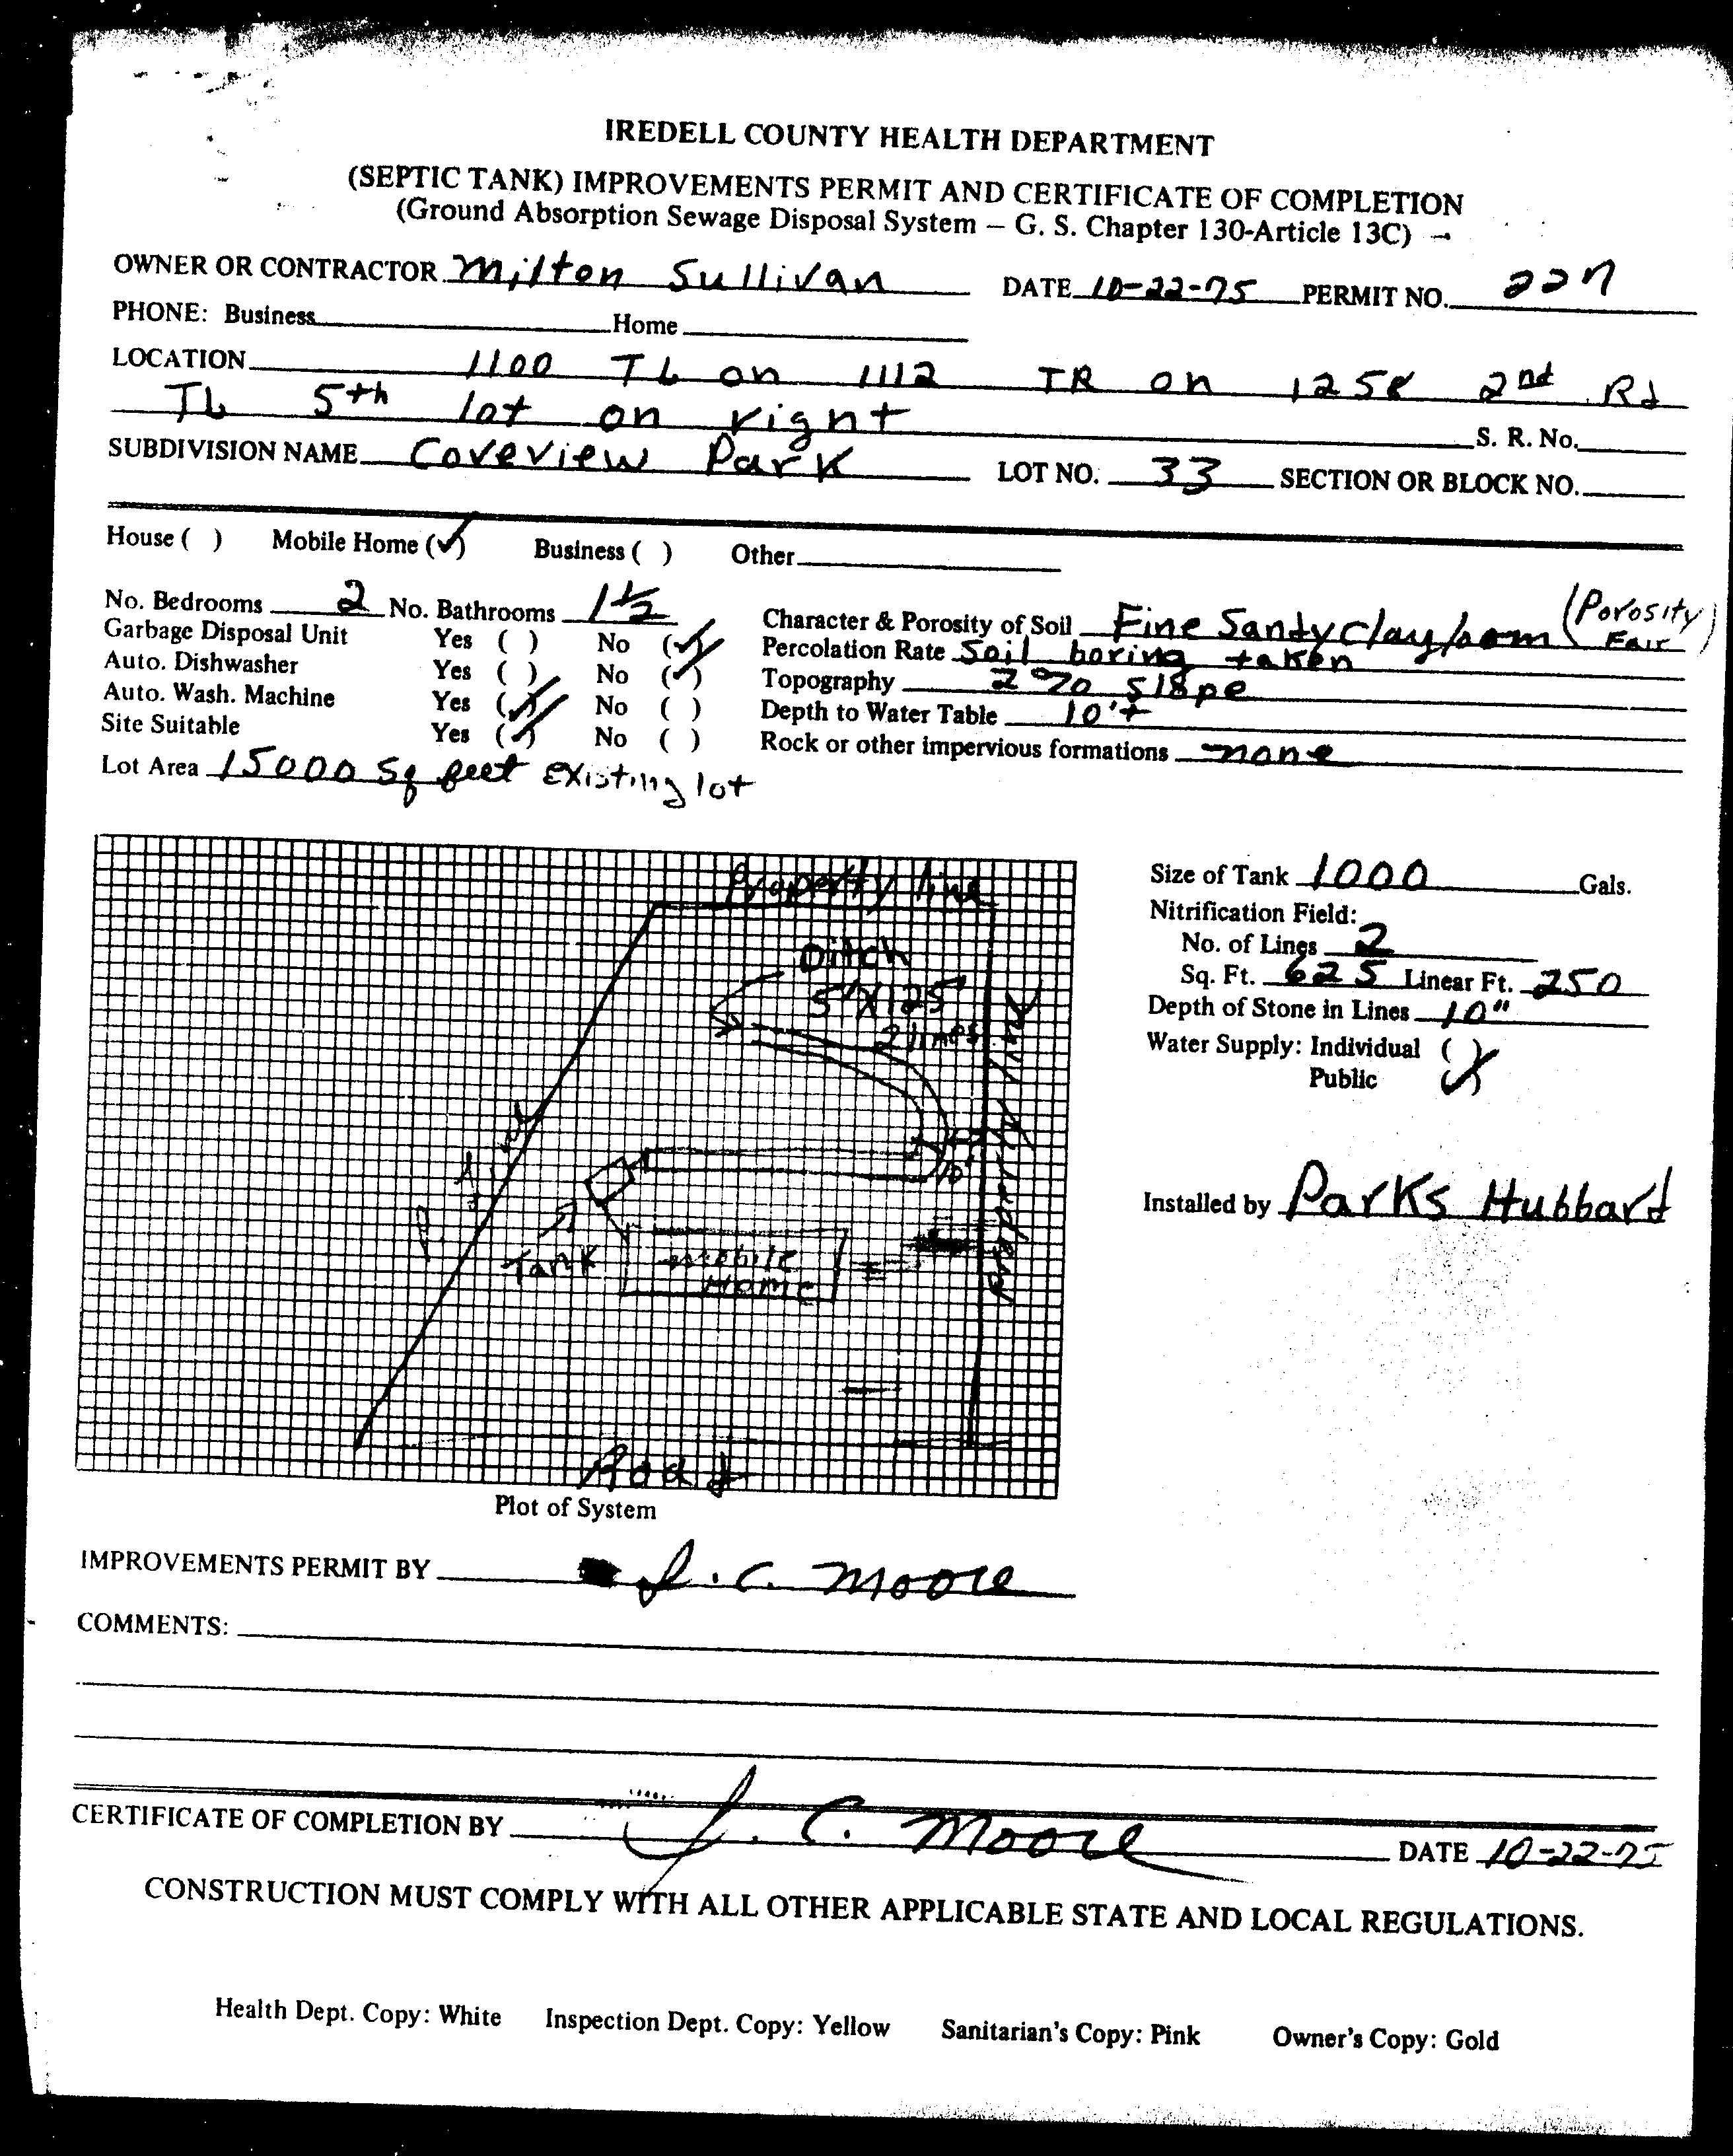 IREDELL COUNTY HEALTH DEPARTMENT
(SEPTIC TANK) IMPROVEMENTS PERMIT AND CERTIFICATE OF COMPLETION
(Ground Absorption Sewage Disposal System — G. S. Chapter 130-Article 13C)
OWNER OR CONTRACTOR Milton Sullivan DATE 10-22-75 PERMIT NO. 227
PHONE: Business Home
LOCATION 1100 TL on 1112 TR on 1258 2nd Rd
TL 5th lot on right S. R. No.
SUBDIVISION NAME Coveview Park LOT NO. 33 SECTION OR BLOCK NO.
House ( ) Mobile Home (✓) Business ( ) Other
No. Bedrooms 2 No. Bathrooms 1 1/2
Garbage Disposal Unit Yes ( ) No (✓)
Auto. Dishwasher Yes ( ) No (✓)
Auto. Wash. Machine Yes (✓) No ( )
Site Suitable Yes (✓) No ( )
Lot Area 15000 Sq feet Existing lot
Character & Porosity of Soil Fine Sandy clay loam (Porosity Fair)
Percolation Rate Soil boring taken
Topography 2% slope
Depth to Water Table 10'+
Rock or other impervious formations none
Property line
Ditch
5'X125'
2 lines
10'
Tank
mobile
Home
Road
Plot of System
Size of Tank 1000 Gals.
Nitrification Field:
No. of Lines 2
Sq. Ft. 625 Linear Ft. 250
Depth of Stone in Lines 10"
Water Supply: Individual ( )
Public (✓)
Installed by Parks Hubbard
IMPROVEMENTS PERMIT BY J. C. Moore
COMMENTS:
CERTIFICATE OF COMPLETION BY J. C. Moore DATE 10-22-75
CONSTRUCTION MUST COMPLY WITH ALL OTHER APPLICABLE STATE AND LOCAL REGULATIONS.
Health Dept. Copy: White Inspection Dept. Copy: Yellow Sanitarian's Copy: Pink Owner's Copy: Gold